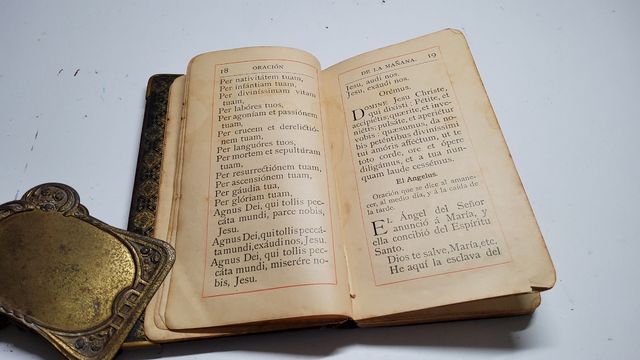 18 ORACIÓN
Per nativitátem tuam,
Per infántiam tuam,
Per diviníssimam vitam
tuam,
Per labóres tuos,
Per agoníam et passiónem
tuam,
Per crucem et derelictió-
nem tuam,
Per languóres tuos,
Per mortem et sepultúram
tuam,
Per resurrectiónem tuam,
Per ascensiónem tuam,
Per gáudia tua,
Per glóriam tuam,
Agnus Dei, qui tollis pec-
cáta mundi, parce nobis,
Jesu.
Agnus Dei, qui tollis peccá-
ta mundi, exáudi nos, Jesu.
Agnus Dei, qui tollis pec-
cáta mundi, miserére no-
bis, Jesu.
DE LA MAÑANA. 19
Jesu, audi nos.
Jesu, exáudi nos.
Orémus.
DOMINE Jesu Christe,
qui dixisti: Pétite, et
accipiétis; quærite, et inve-
niétis; pulsáte, et aperiétur
vobis: quæsumus, da no-
bis peténtibus diviníssimi
tui amóris afféctum, ut te
toto corde, ore et ópere
diligámus, et a tua nun-
quam laude cessémus.
El Angelus.
Oración que se dice al amane-
cer, al medio día, y á la caída de
la tarde.
EL Ángel del Señor
anunció á María, y
ella concibió del Espíritu
Santo.
Dios te salve, María, etc.
He aquí la esclava del